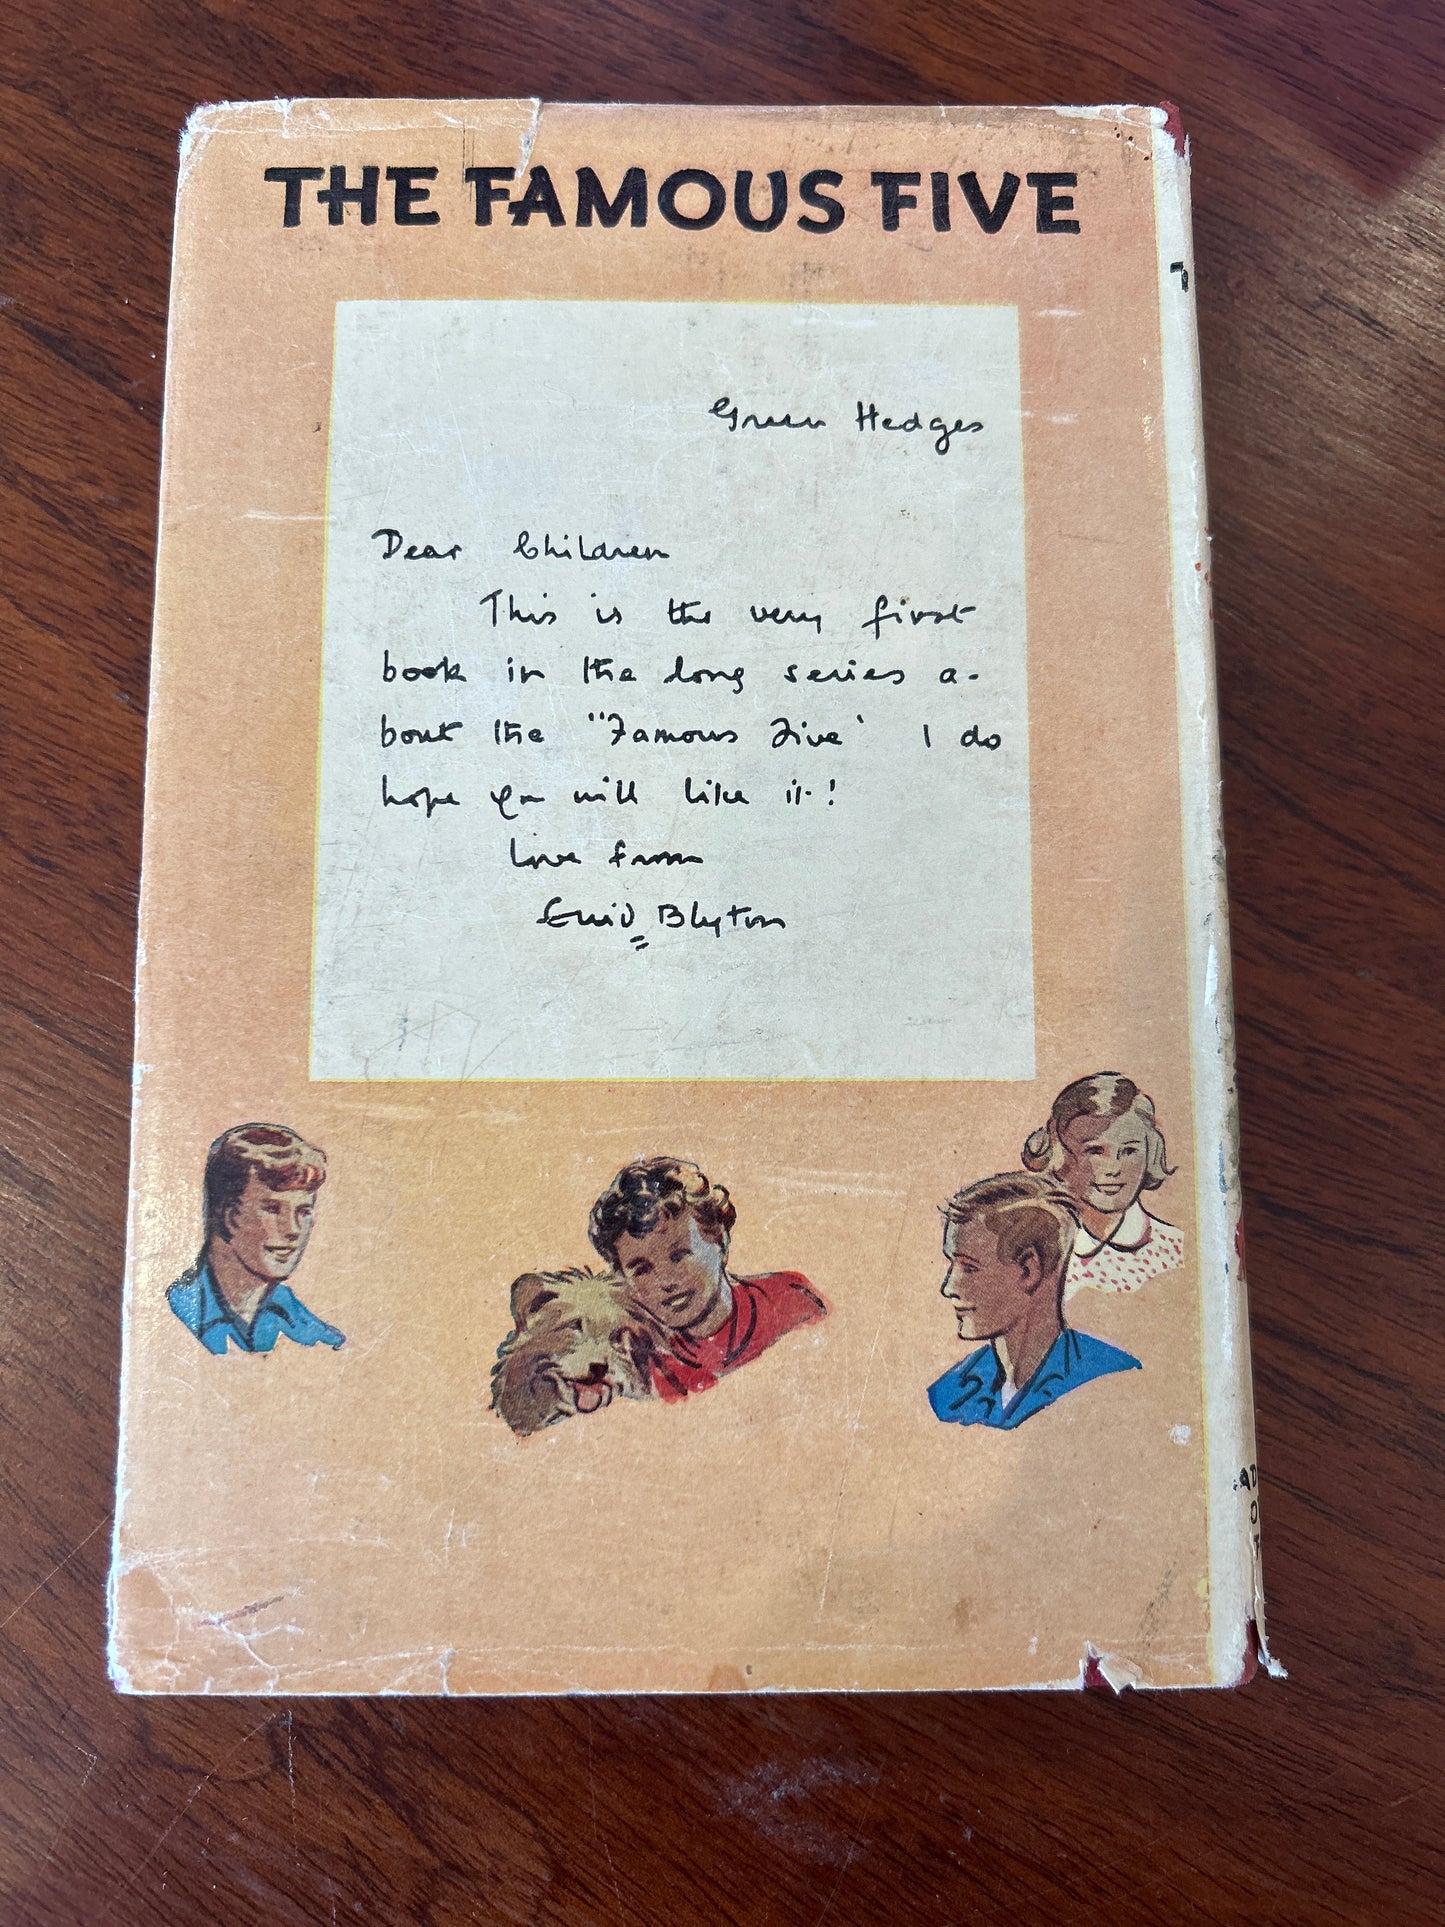 THE FAMOUS FIVE
Green Hedges
Dear Children
This is the very first
book in the long series a-
bout the "Famous Five' I do
hope you will like it!
Love from
Enid Blyton